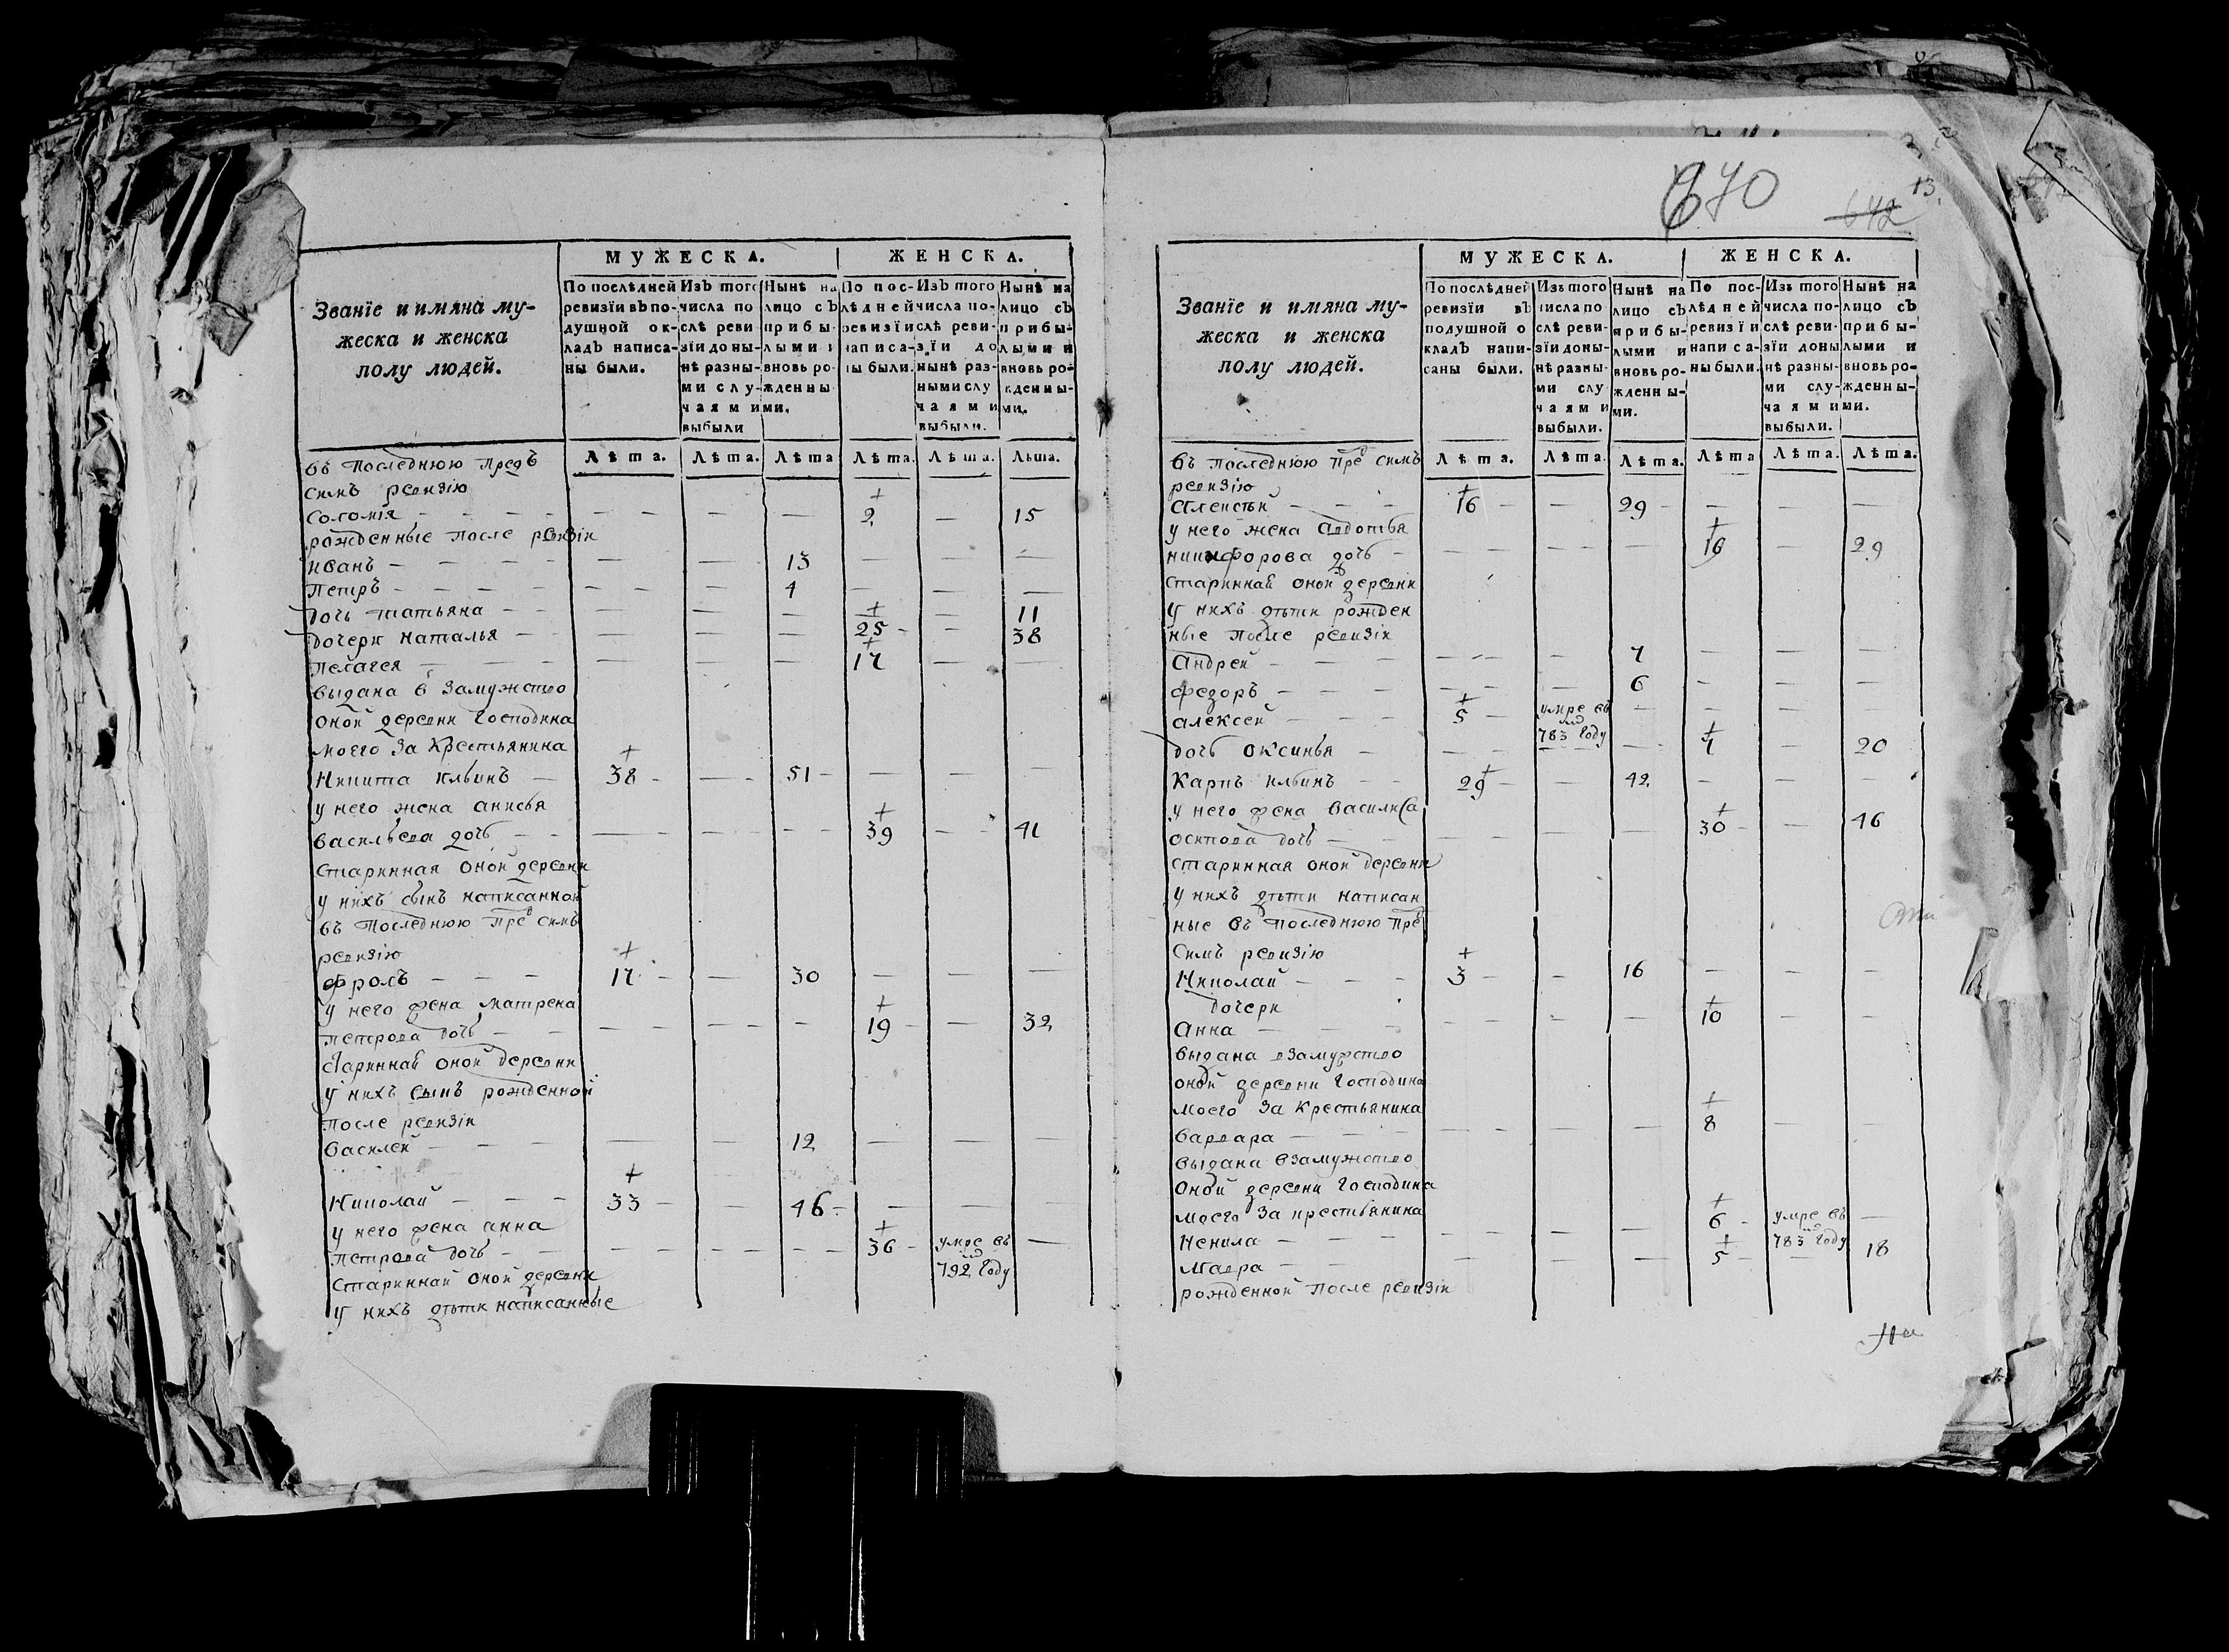 670
642
13.
МУЖЕСКА. ЖЕНСКА.
Званїе и имяна му-
жеска и женска
полу людей.
По послѣдней
ревизїи въ по-
душной ок-
ладъ написа-
ны были.
Изъ того
числа по
слѣ реви-
зїи до ны-
нѣ разны-
ми слу-
чаями
выбыли
Нынѣ на
лицо съ
прибы-
лыми и
вновь ро-
жденны-
ми.
По пос-
лѣдней
ревизїи
написа-
ны были.
Изъ того
числа по-
слѣ реви-
зїи до
нынѣ раз-
ными слу
чаями
выбыли.
Нынѣ на
лицо съ
прибы-
лыми и
вновь ро-
жденны-
ми.
Лѣта. Лѣта. Лѣта Лѣта. Лѣта. Лѣта.
въ последнюю предъ
симъ ревизію
Соломія — — — + 2 — 15
рожденные после ревизіи
иванъ — — — 13 — — —
Петръ — — — 4 — — —
дочь татьяна — — — — — 11
дочери наталья — — — + 25 — 38
Пелагея — — — + 17 — —
выдана в замужство
оной деревни Господина
моего за крестьянина
Никита ильинъ — + 38 — 51 — — —
у него жена анисья
васильева дочь — — — + 39 — 41
старинная оной деревни
у нихъ сынъ написанной
въ последнюю пред симъ
ревизію
фролъ — + 17 — 30 — — —
у него жена матрена
петрова дочь — — — + 19 — 32
старинная оной деревни
у нихъ сынъ рожденной
после ревизіи
василей — — — 12 — — —
Николай — + 33 — 46 — — —
у него жена анна
петрова дочь — — — + 36 умре въ 792 году —
старинная оной деревни
у нихъ дѣти написанные
МУЖЕСКА. ЖЕНСКА.
Званїе и имяна му-
жеска и женска
полу людей.
По послѣдней
ревизїи въ
подушной о
кладъ напи-
саны были.
Изъ того
числа по
слѣ реви-
зїи доны-
нѣ разны-
ми слу
чаями
выбыли.
Нынѣ на
лицо съ
прибы-
лыми и
вновь ро-
жденны-
ми.
По пос-
лѣдней
ревизїи
написа-
ны были.
Изъ того
числа по-
слѣ реви-
зїи доны
нѣ разны-
ми слу-
чаями
выбыли.
Нынѣ на
лицо съ
прибы-
лыми и
вновь ро-
жденны-
ми.
Лѣта. Лѣта. Лѣта. Лѣта Лѣта. Лѣта.
въ последнюю пред симъ
ревизію
Алексѣй — + 16 — 29 — — —
у него жена авдотья
никифорова дочь — — — + 16 — 29
старинная оной деревни
у нихъ дѣти рожден
ные после ревизіи
Андрей — — — 7 — — —
федоръ — — — 6 — — —
алексей — + 5 умре въ 783 году — — — —
дочь оксинья — — — + 7 — 20
Карпъ ильинъ — + 29 — 42 — — —
у него жена василиса
осипова дочь — — — + 30 — 46
старинная оной деревни
у нихъ дѣти написан
ные въ последнюю пред
симъ ревизію
Николай — + 3 — 16 — — —
дочери
Анна — — — + 10 — —
выдана взамужство
оной деревни Господина
моего за крестьянина
варвара — — — + 8 — —
выдана взамужство
оной деревни Господина
моего за крестьянина
Ненила — — — + 6 умре въ 783 году —
мавра — — — + 5 — 18
рожденной после ревизіи